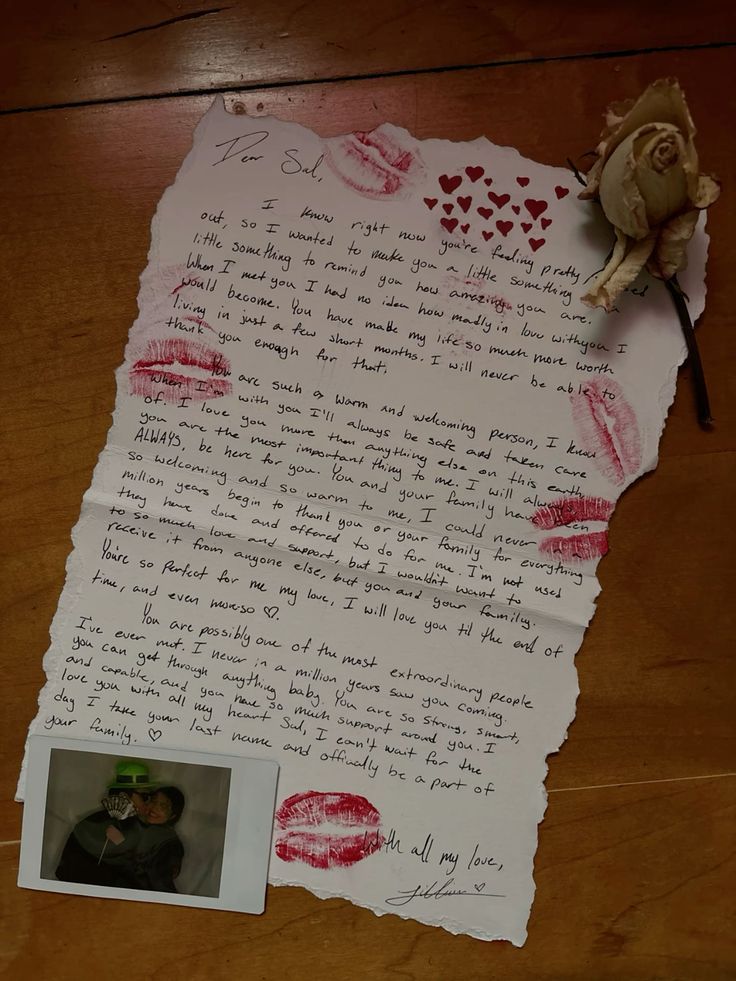 Dear Sal,
I know right now you're feeling pretty
out, so I wanted to make you a little something
little something to remind you how amazing you are.
When I met you I had no idea how madly in love with you I
would become. You have made my life so much more worth
living in just a few short months. I will never be able to
thank you enough for that.
You are such a warm and welcoming person, I know
when I'm with you I'll always be safe and taken care
of. I love you more then anything else on this earth,
you are the most important thing to me. I will always,
ALWAYS, be here for you. You and your family have been
so welcoming and so warm to me, I could never in a
million years begin to thank you or your family for everything
they have done and offered to do for me. I'm not used
to so much love and support, but I wouldn't want to
receive it from anyone else, but you and your family.
You're so perfect for me my love, I will love you til the end of
time, and even more so ♡.
You are possibly one of the most extraordinary people
I've ever met. I never in a million years saw you coming.
you can get through anything baby. You are so strong, smart,
and capable, and you have so much support around you. I
love you with all my heart Sal, I can't wait for the
day I take your last name and offically be a part of
your family. ♡
With all my love,
Jillian ♡